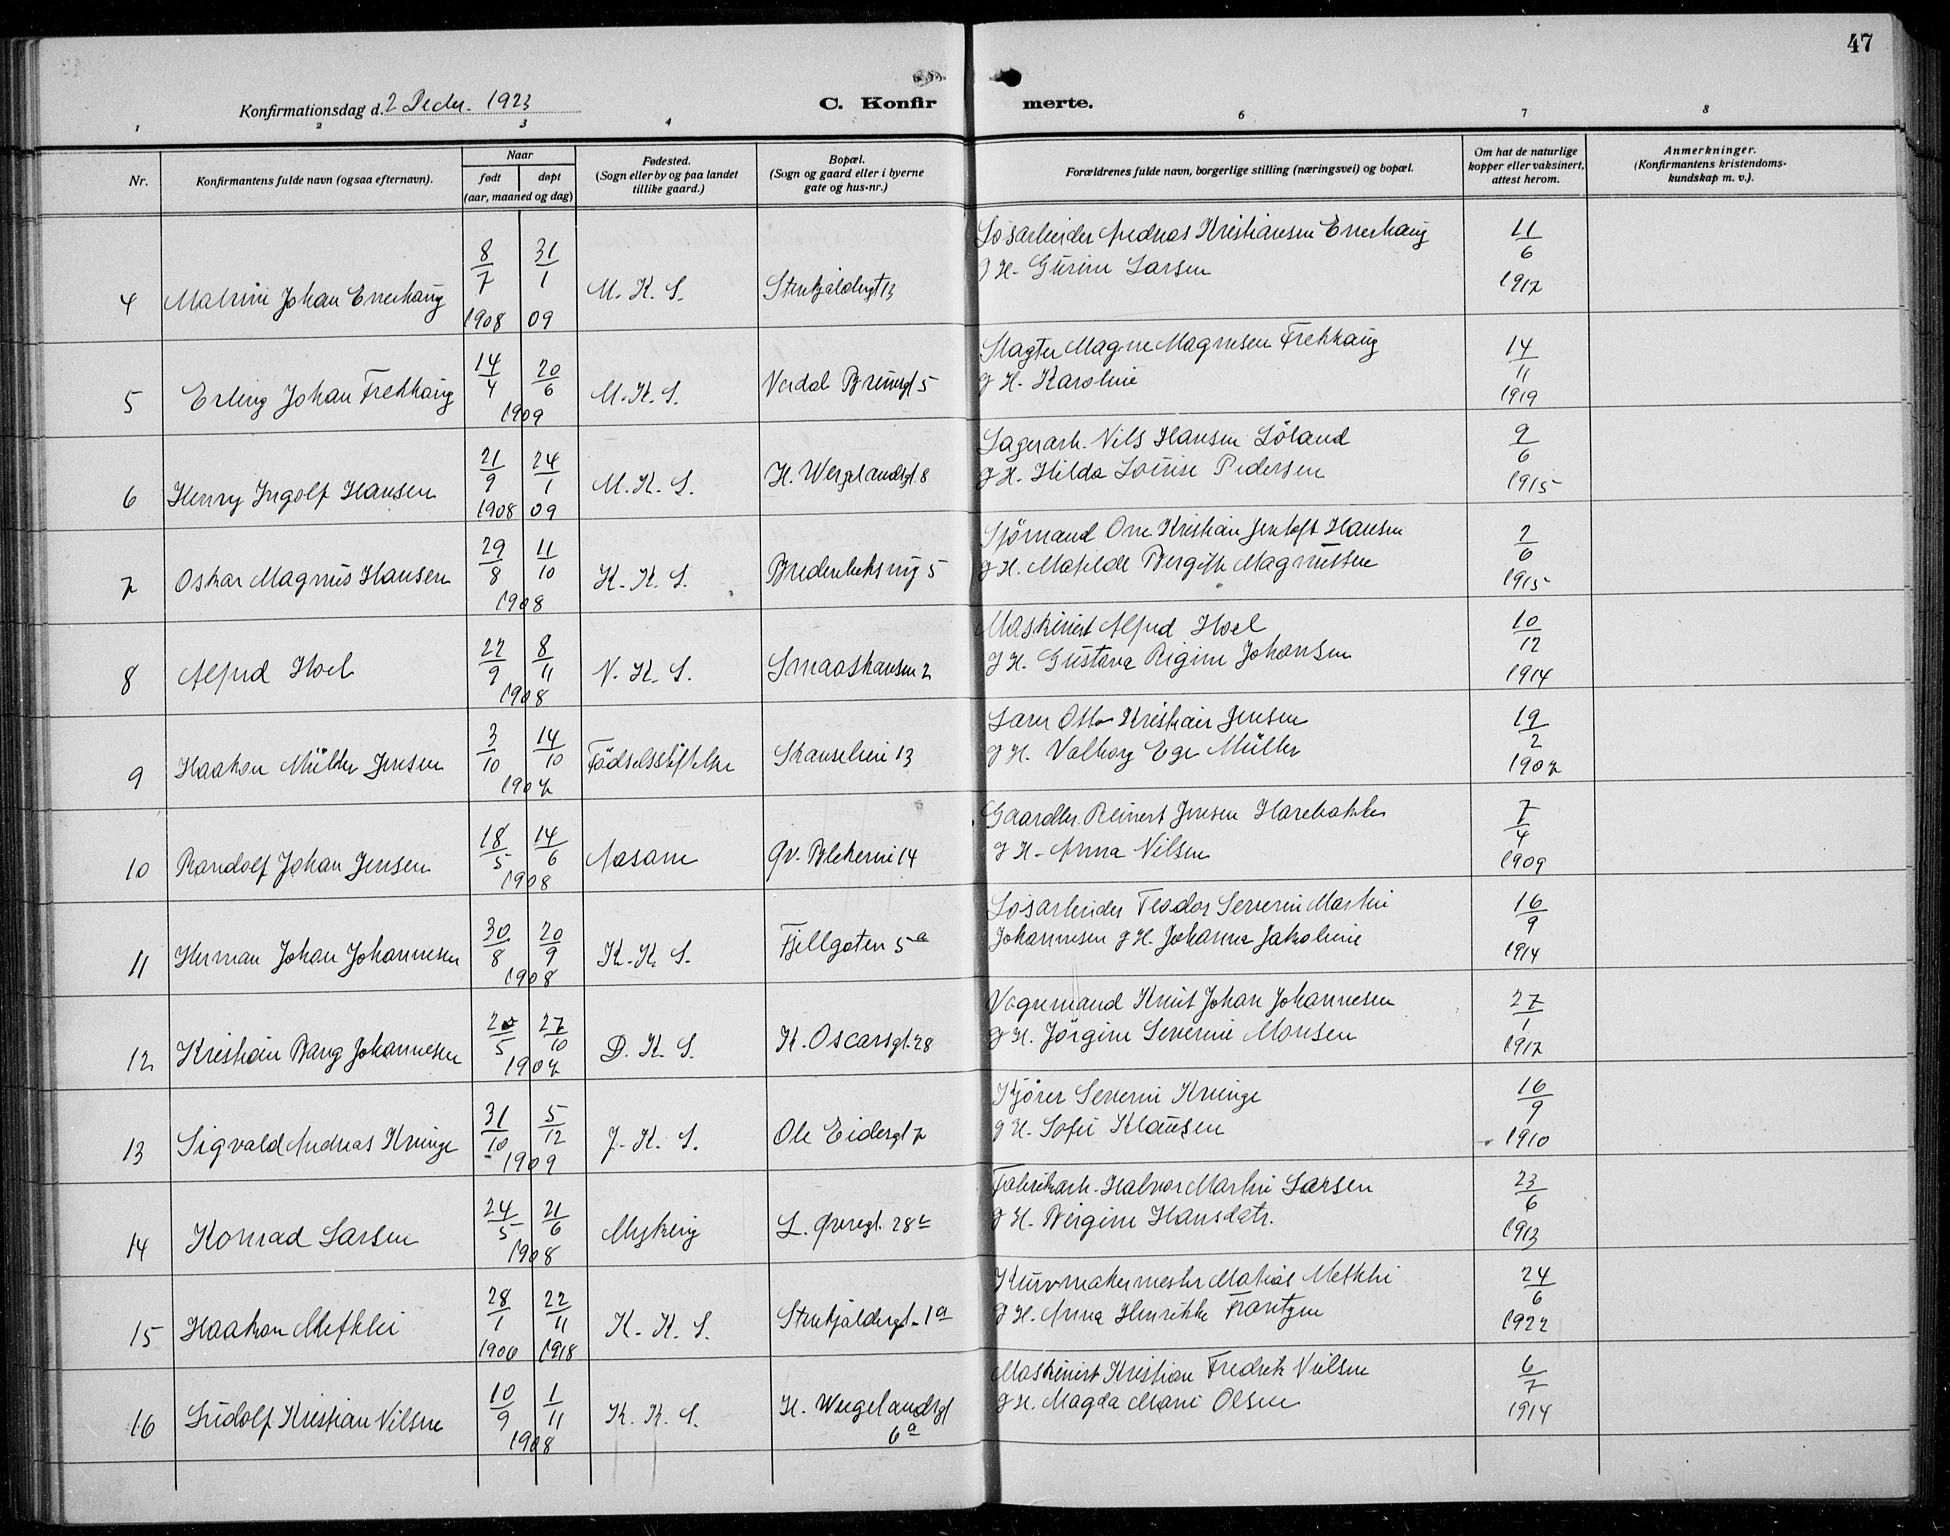 47
Konfirmationsdag d. 2 Decbr. 1923
C. Konfirmerte.
1 2 3 4 6 7 8
Nr.
Konfirmantens fulde navn (ogsaa efternavn).
Naar
født
døpt
(aar, maaned og dag)
Fødested.
(Sogn eller by og paa landet
tillike gaard.)
Bopæl.
(Sogn og gaard eller i byerne
gate og hus-nr.)
Forældrenes fulde navn, borgerlige stilling (næringsvei) og bopæl.
Om hat de naturlige
kopper eller vaksinert,
attest herom.
Anmerkninger.
(Konfirmantens kristendoms-
kundskap m. v.).
4 Johan Ennerhaug 8/7 1908 31/1 09 M. K. S. Stenkjeldergt 13
Løsarbeider Andreas Kristiansen Ennerhaug
g H. Gurine Larsen
11/6 1917
5 Erling Johan Frekhaug 14/4 20/6 1909 M. K. S. Verdal Brunsgt 5
Slagter Magne Magnesen Frekhaug
g H. Karoline
14/11 1919
6 Henry Ingolf Hansen 21/9 1908 24/1 09 M. K. S. H. Wergelandsgt. 8
Lagerarb. Nils Hansen Løland
g H. Hilda Louise Pedersen
9/6 1915
7 Oskar Magnus Hansen 29/8 11/10 1908 K. K. S. 5
Sjømand One Kristian Jentoft Hansen
g H. Matilde Bergitte Magnussen
2/6 1915
8 Alfred Hoel 22/9 8/11 1908 N. K. S. Smaaskansen 2
Maskinist Alfred Hoel
g H. Gustava Regine Johansen
10/12 1914
9 Haakon Müller Jensen 3/10 14/10 1907 Fødselsstiftelse Skanselien 13
Otto Kristian Jensen
g H. Valborg Ege Müller
19/2 1907
10 Randolf Johan Jensen 18/5 14/6 1908 Aasane Øv. Blekevei 14
Gaardbr. Reinert Jensen Harebakke
g H. Anna Nilsen
7/4 1909
11 Herman Johan Johannesen 30/8 20/9 1908 K. K. S. Fjellgaten 5a
Løsarbeider Teodor Severin Martin
Johannesen g H. Johanna Jakobine
16/9 1914
12 Kristian Bang Johannesen 5 27/10 1907 D. K. S. K. Oscarsgt. 28
Vognmand Knut Johan Johannesen
g H. Jørgine Severine Monsen
27/1 1917
13 Sigvald Andreas Kringe 31/10 5/12 1909 J. K. S. Ole Eidesgt 7
Kjører Severin Kringe
g H. Sofie Klausen
16/9 1910
14 Konrad Larsen 24/5 21/6 1908 Myking L. Øvregt. 28c
Fabrikarb. Halvor Martin Larsen
g H. Bergine Hansdatr.
23/6 1913
15 Haakon Metklei 28/1 1906 22/11 1918 K. K. S. Stenkjeldergt. 1a
Kurvmakermester Matias Metklei
g H. Anna Henrikke Frantzen
24/6 1922
16 Ludolf Kristian Nilsen 10/9 1/11 1908 K. K. S. H. Wergelandsgt
6a
Maskinist Kristian Fredrik Nilsen
g H. Magda Marie Olsen
6/7 1914